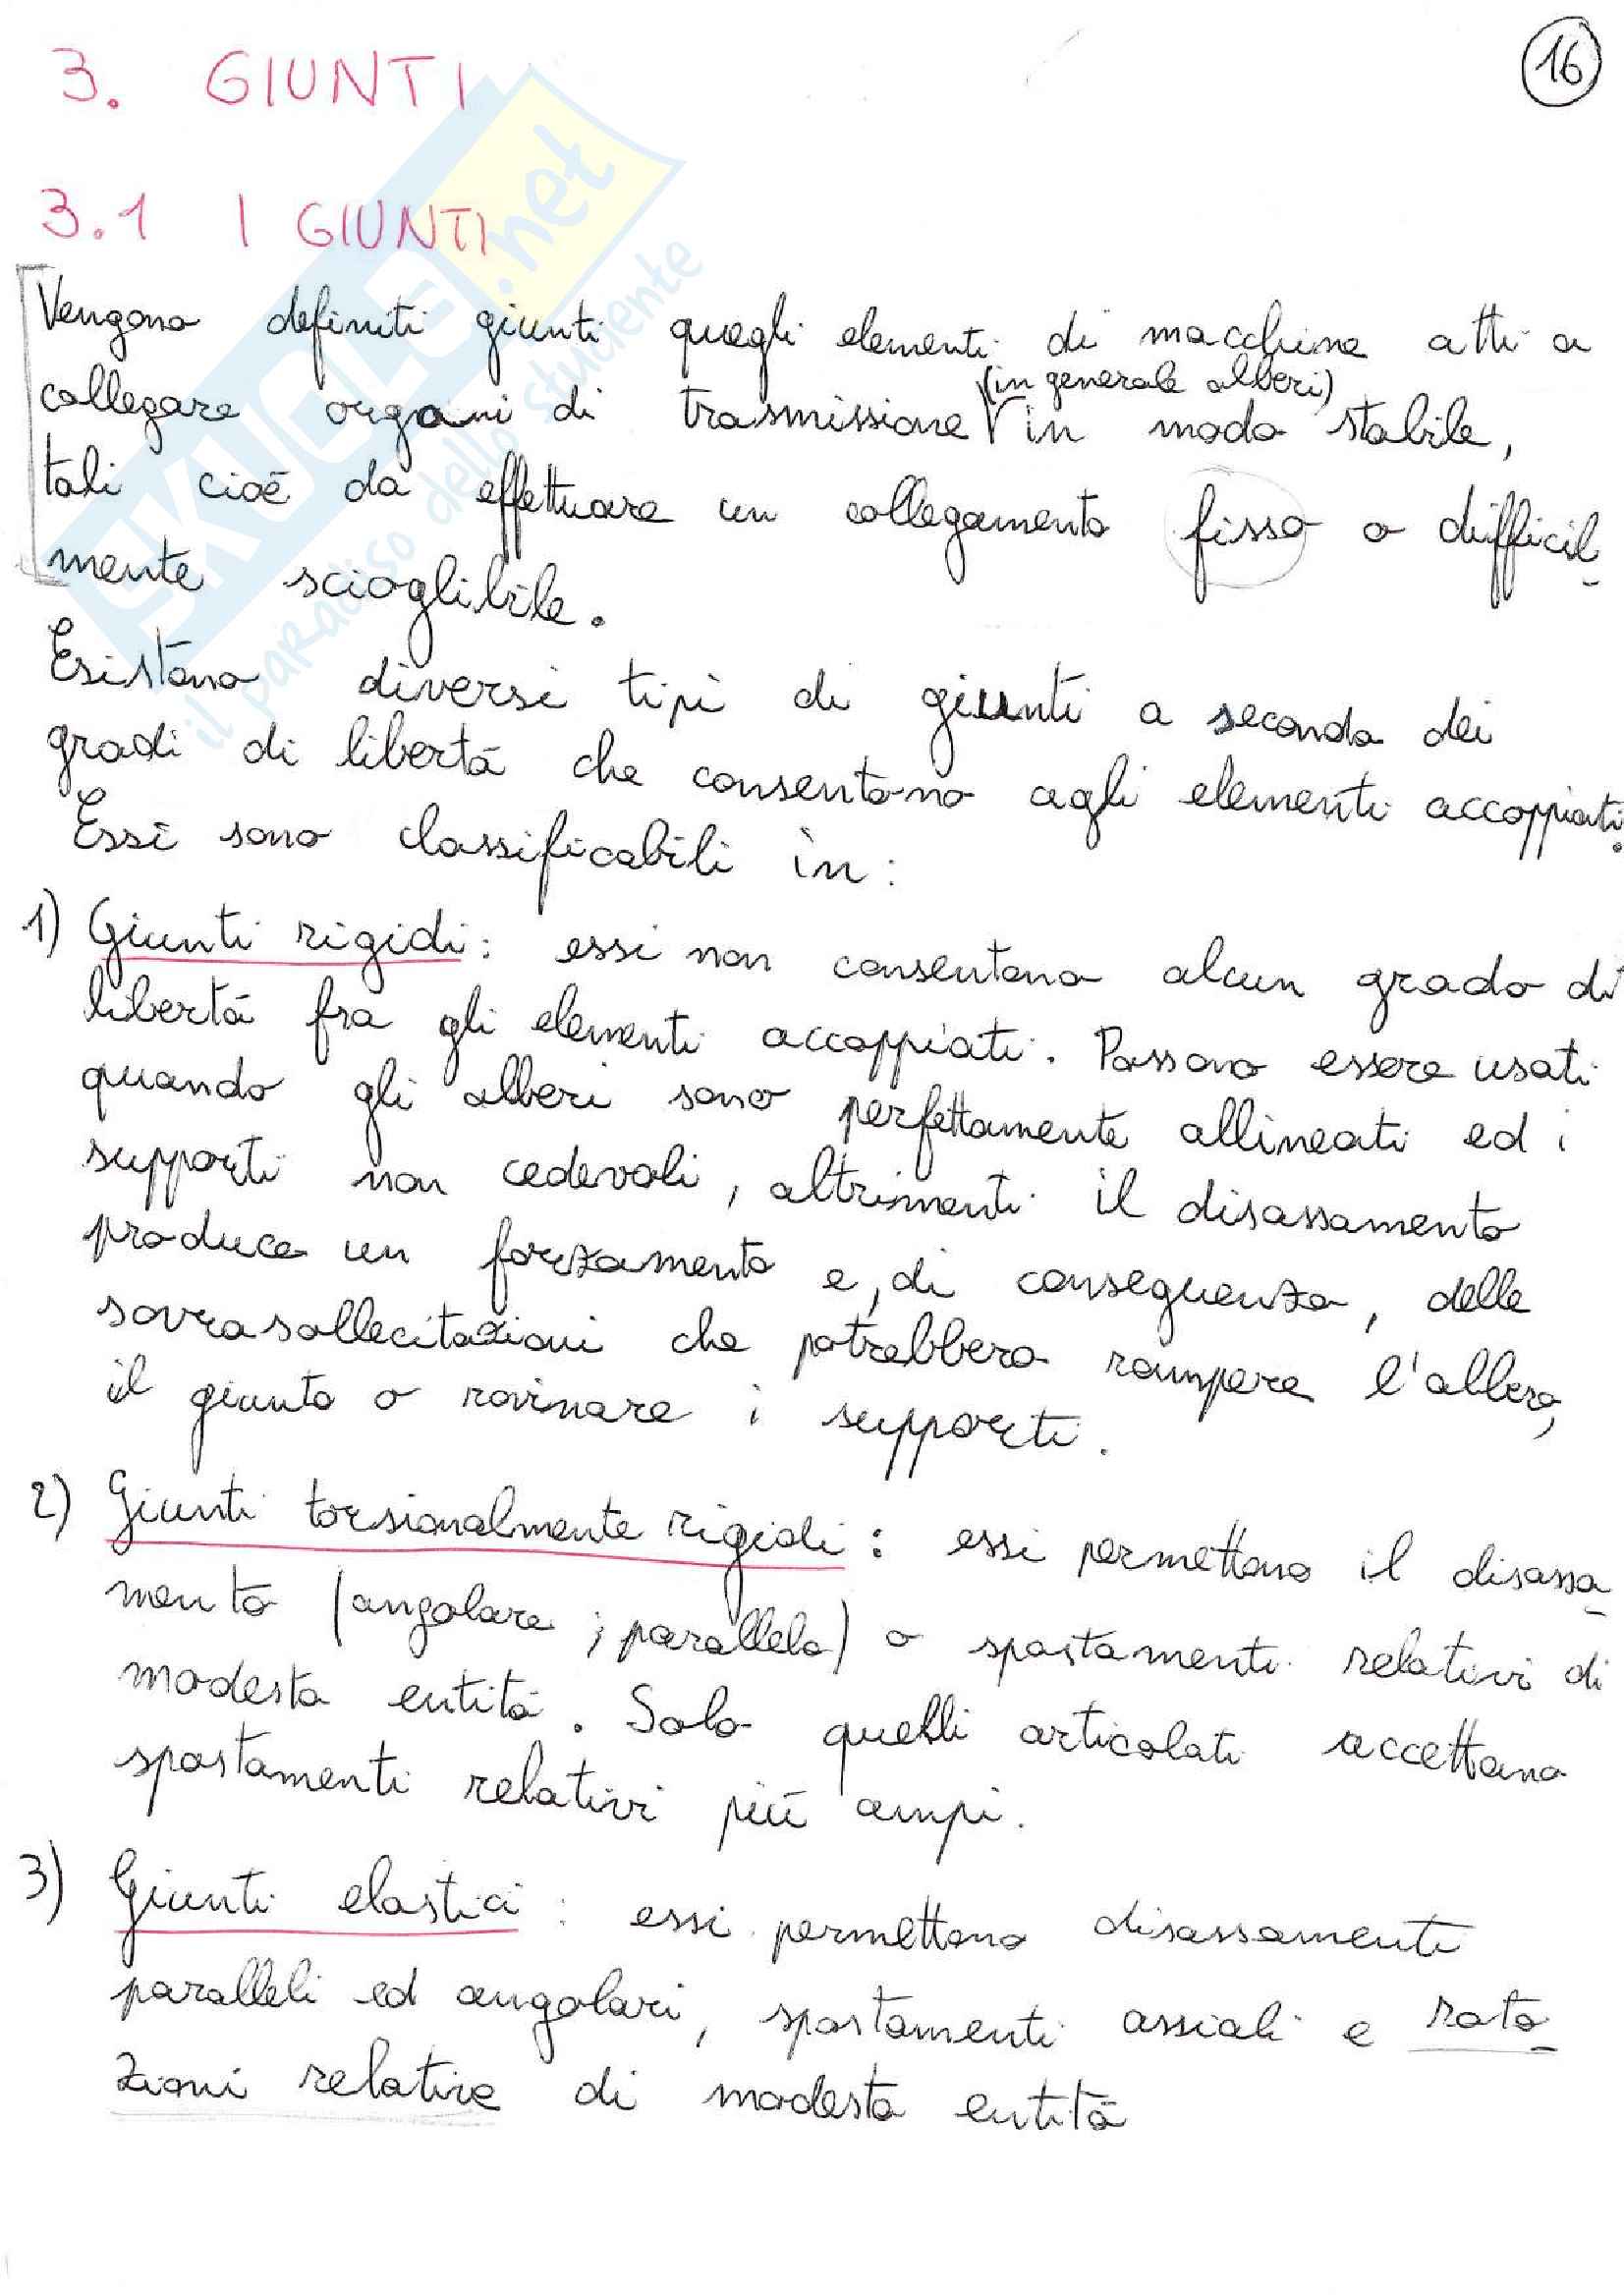 16
3. GIUNTI
3.1 I GIUNTI
Vengono definiti giunti quegli elementi di macchine atti a
(in generale alberi)
collegare organi di trasmissione in modo stabile,
tali cioè da effettuare un collegamento fisso o difficil-
mente scioglibile.
Esistono diversi tipi di giunti a seconda dei
gradi di libertà che consentono agli elementi accoppiati.
Essi sono classificabili in:
1) Giunti rigidi: essi non consentono alcun grado di
libertà fra gli elementi accoppiati. Possono essere usati
quando gli alberi sono perfettamente allineati ed i
supporti non cedevoli, altrimenti il disassamento
produce un forzamento e, di conseguenza, delle
sovrasollecitazioni che potrebbero rompere l'albero,
il giunto o rovinare i supporti.
2) Giunti torsionalmente rigidi: essi permettono il disassa-
mento (angolare ; parallelo) o spostamenti relativi di
modesta entità. Solo quelli articolati accettano
spostamenti relativi più ampi.
3) Giunti elastici: essi permettono disassamenti
paralleli ed angolari, spostamenti assiali e rota-
zioni relative di modesta entità
SKUOLA.net
il paradiso dello studente